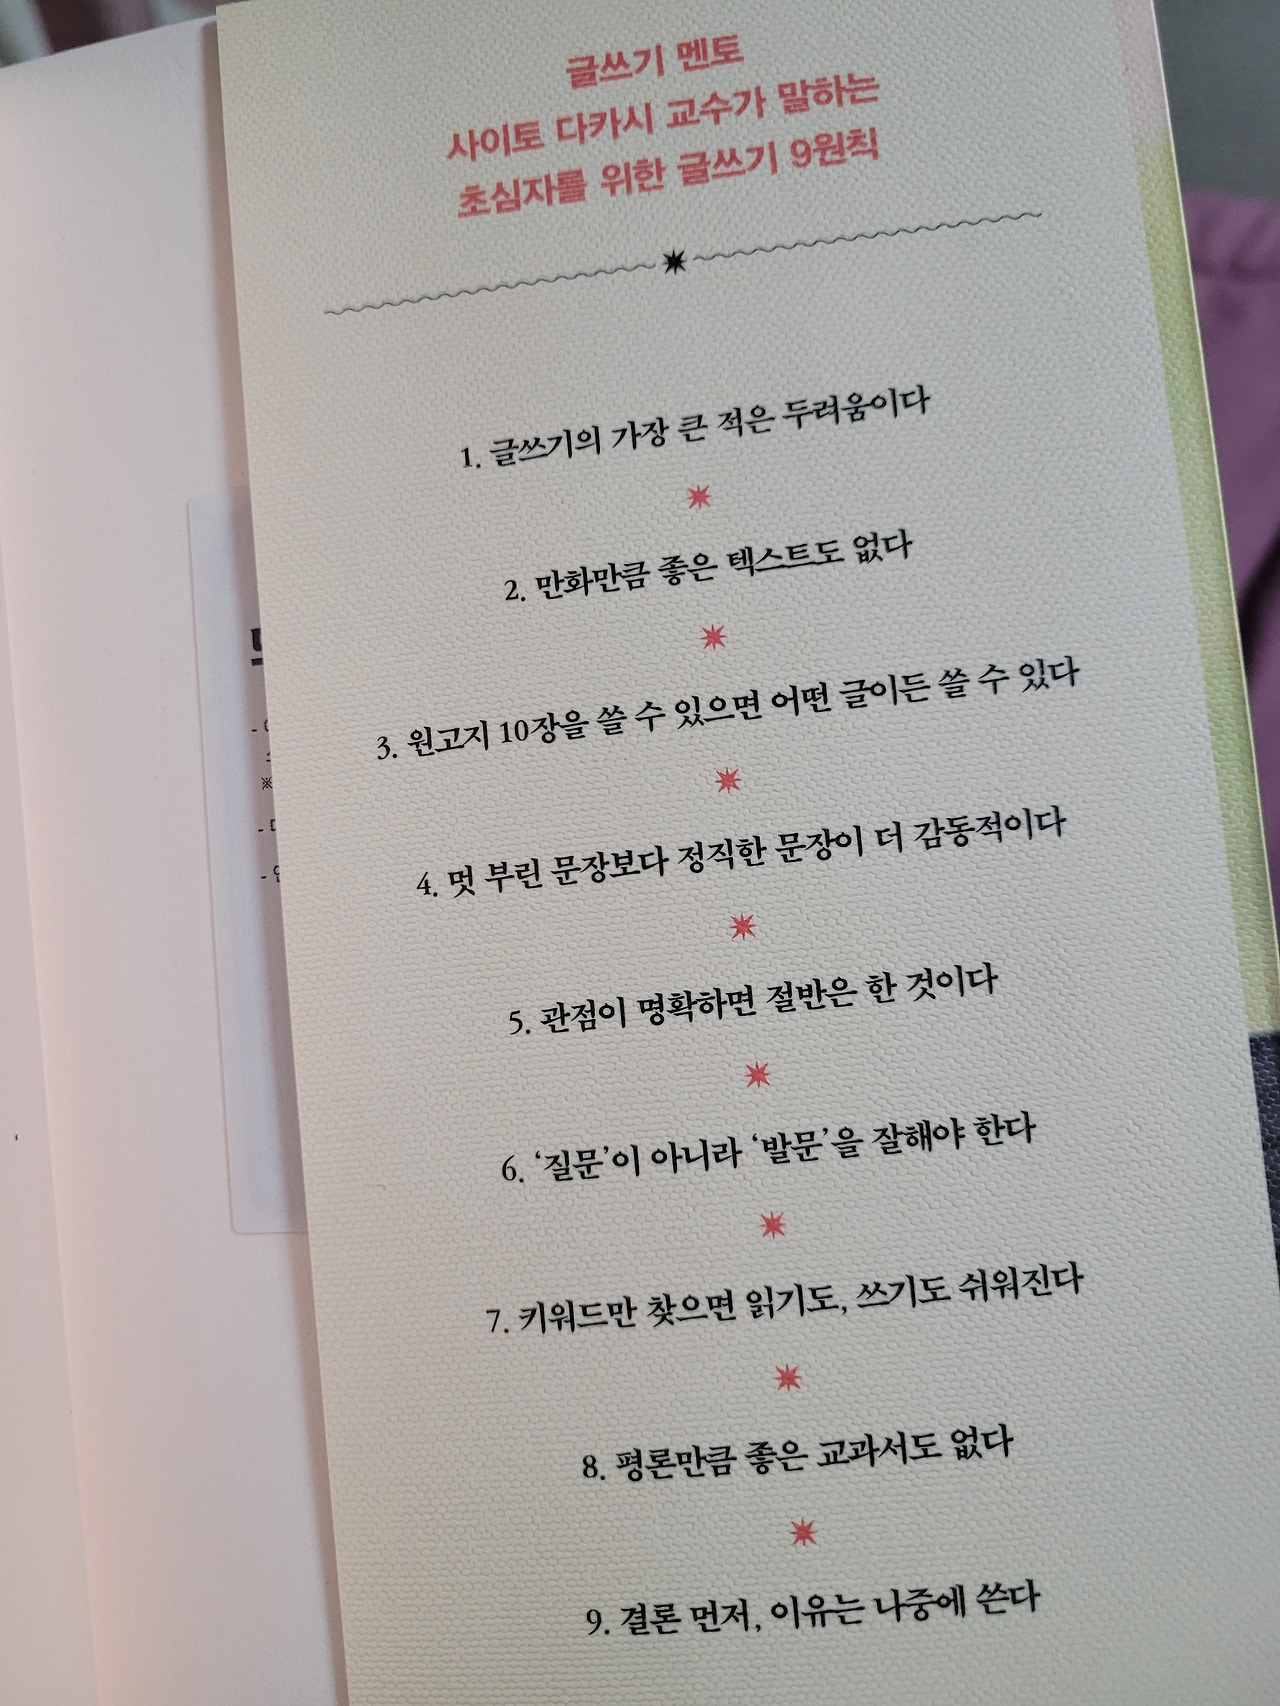 글쓰기 멘토
사이토 다카시 교수가 말하는
초심자를 위한 글쓰기 9원칙
1. 글쓰기의 가장 큰 적은 두려움이다
2. 만화만큼 좋은 텍스트도 없다
3. 원고지 10장을 쓸 수 있으면 어떤 글이든 쓸 수 있다
4. 멋 부린 문장보다 정직한 문장이 더 감동적이다
5. 관점이 명확하면 절반은 한 것이다
6. ‘질문’이 아니라 ‘발문’을 잘해야 한다
7. 키워드만 찾으면 읽기도, 쓰기도 쉬워진다
8. 평론만큼 좋은 교과서도 없다
9. 결론 먼저, 이유는 나중에 쓴다